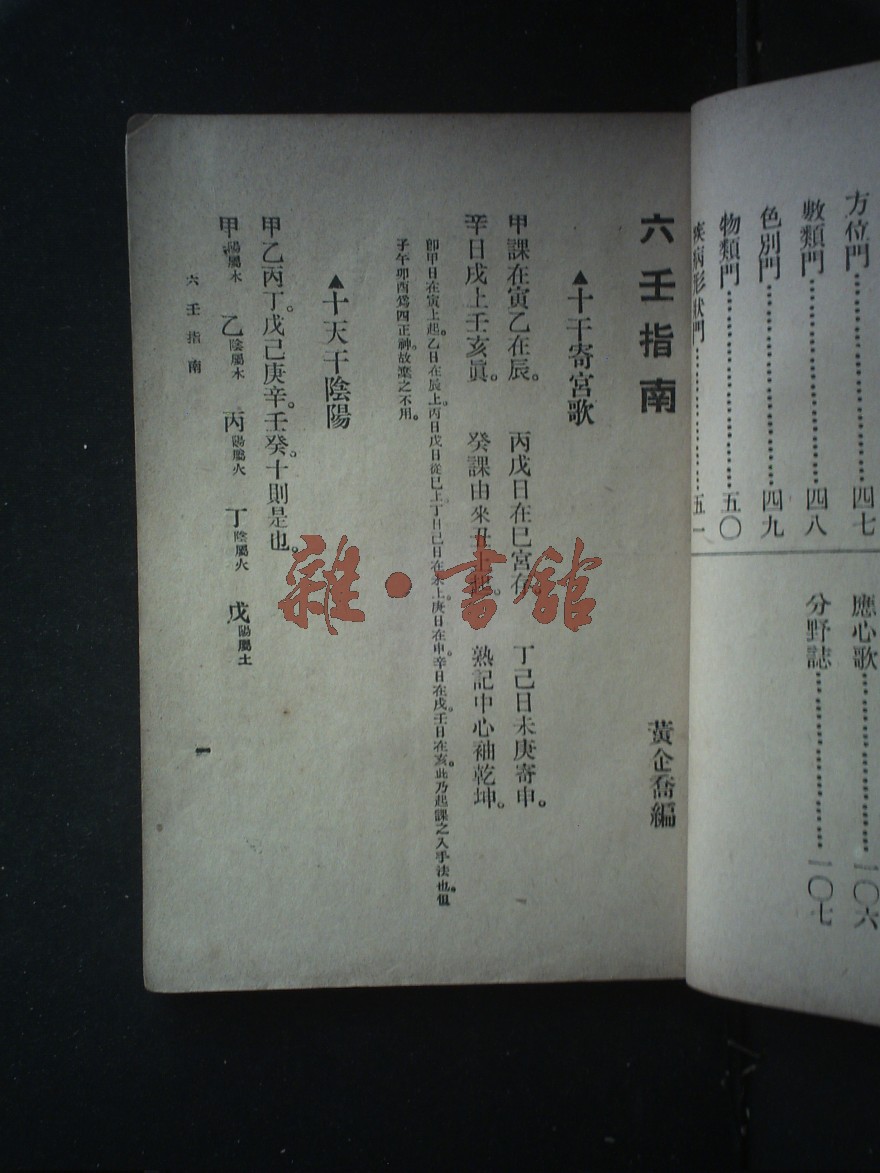 方位門……………四七
數類門……………四八
色別門……………四九
物類門……………五〇
疾病形狀門……………五一
應心歌……………一〇六
分野誌……………一〇七
六壬指南
黃企喬編
▲十干寄宮歌
甲課在寅乙在辰。 丙戊日在巳宮存。 丁己日未庚寄申。
辛日戌上壬亥眞。 癸課由來丑上 熟記中心袖乾坤。
卽甲日在寅上起。乙日在辰上。丙日戊日從巳上。丁日己日在未上。庚日在申。辛日在戌。壬日在亥。此乃起課之入手法也。但
子午卯酉爲四正神。故棄之不用。
▲十天干陰陽
甲乙丙丁。戊己庚辛。壬癸。十則是也。
甲陽屬木 乙陰屬木 丙陽屬火 丁陰屬火 戊陽屬土
六壬指南
一
雜·書館